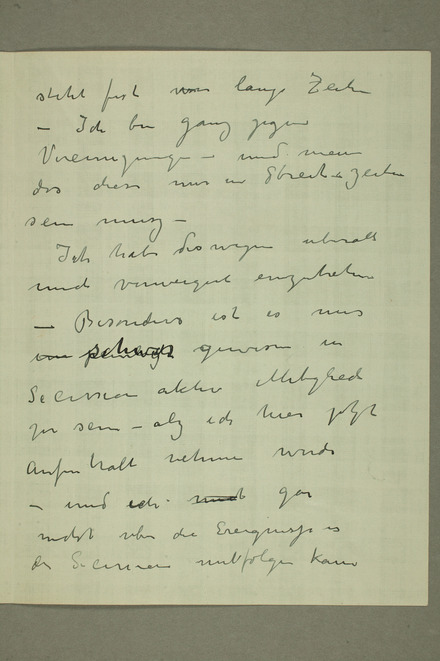 steht fest lange Zeiten
– Ich bin ganz gegen
Vereinigungen – und
das dies nur in Streit zeiten
sein musz –
Ich habe deswegen uberall
mich verweigert einzutreten
– Besonders ist es mir
gewesen in
Secession aktiv Mitglied
zu sein – als ich hier jetzt
Aufenthalt nehmen
– und ich gar
nicht uber die Ereignisse
der Secession mitfolgen kann